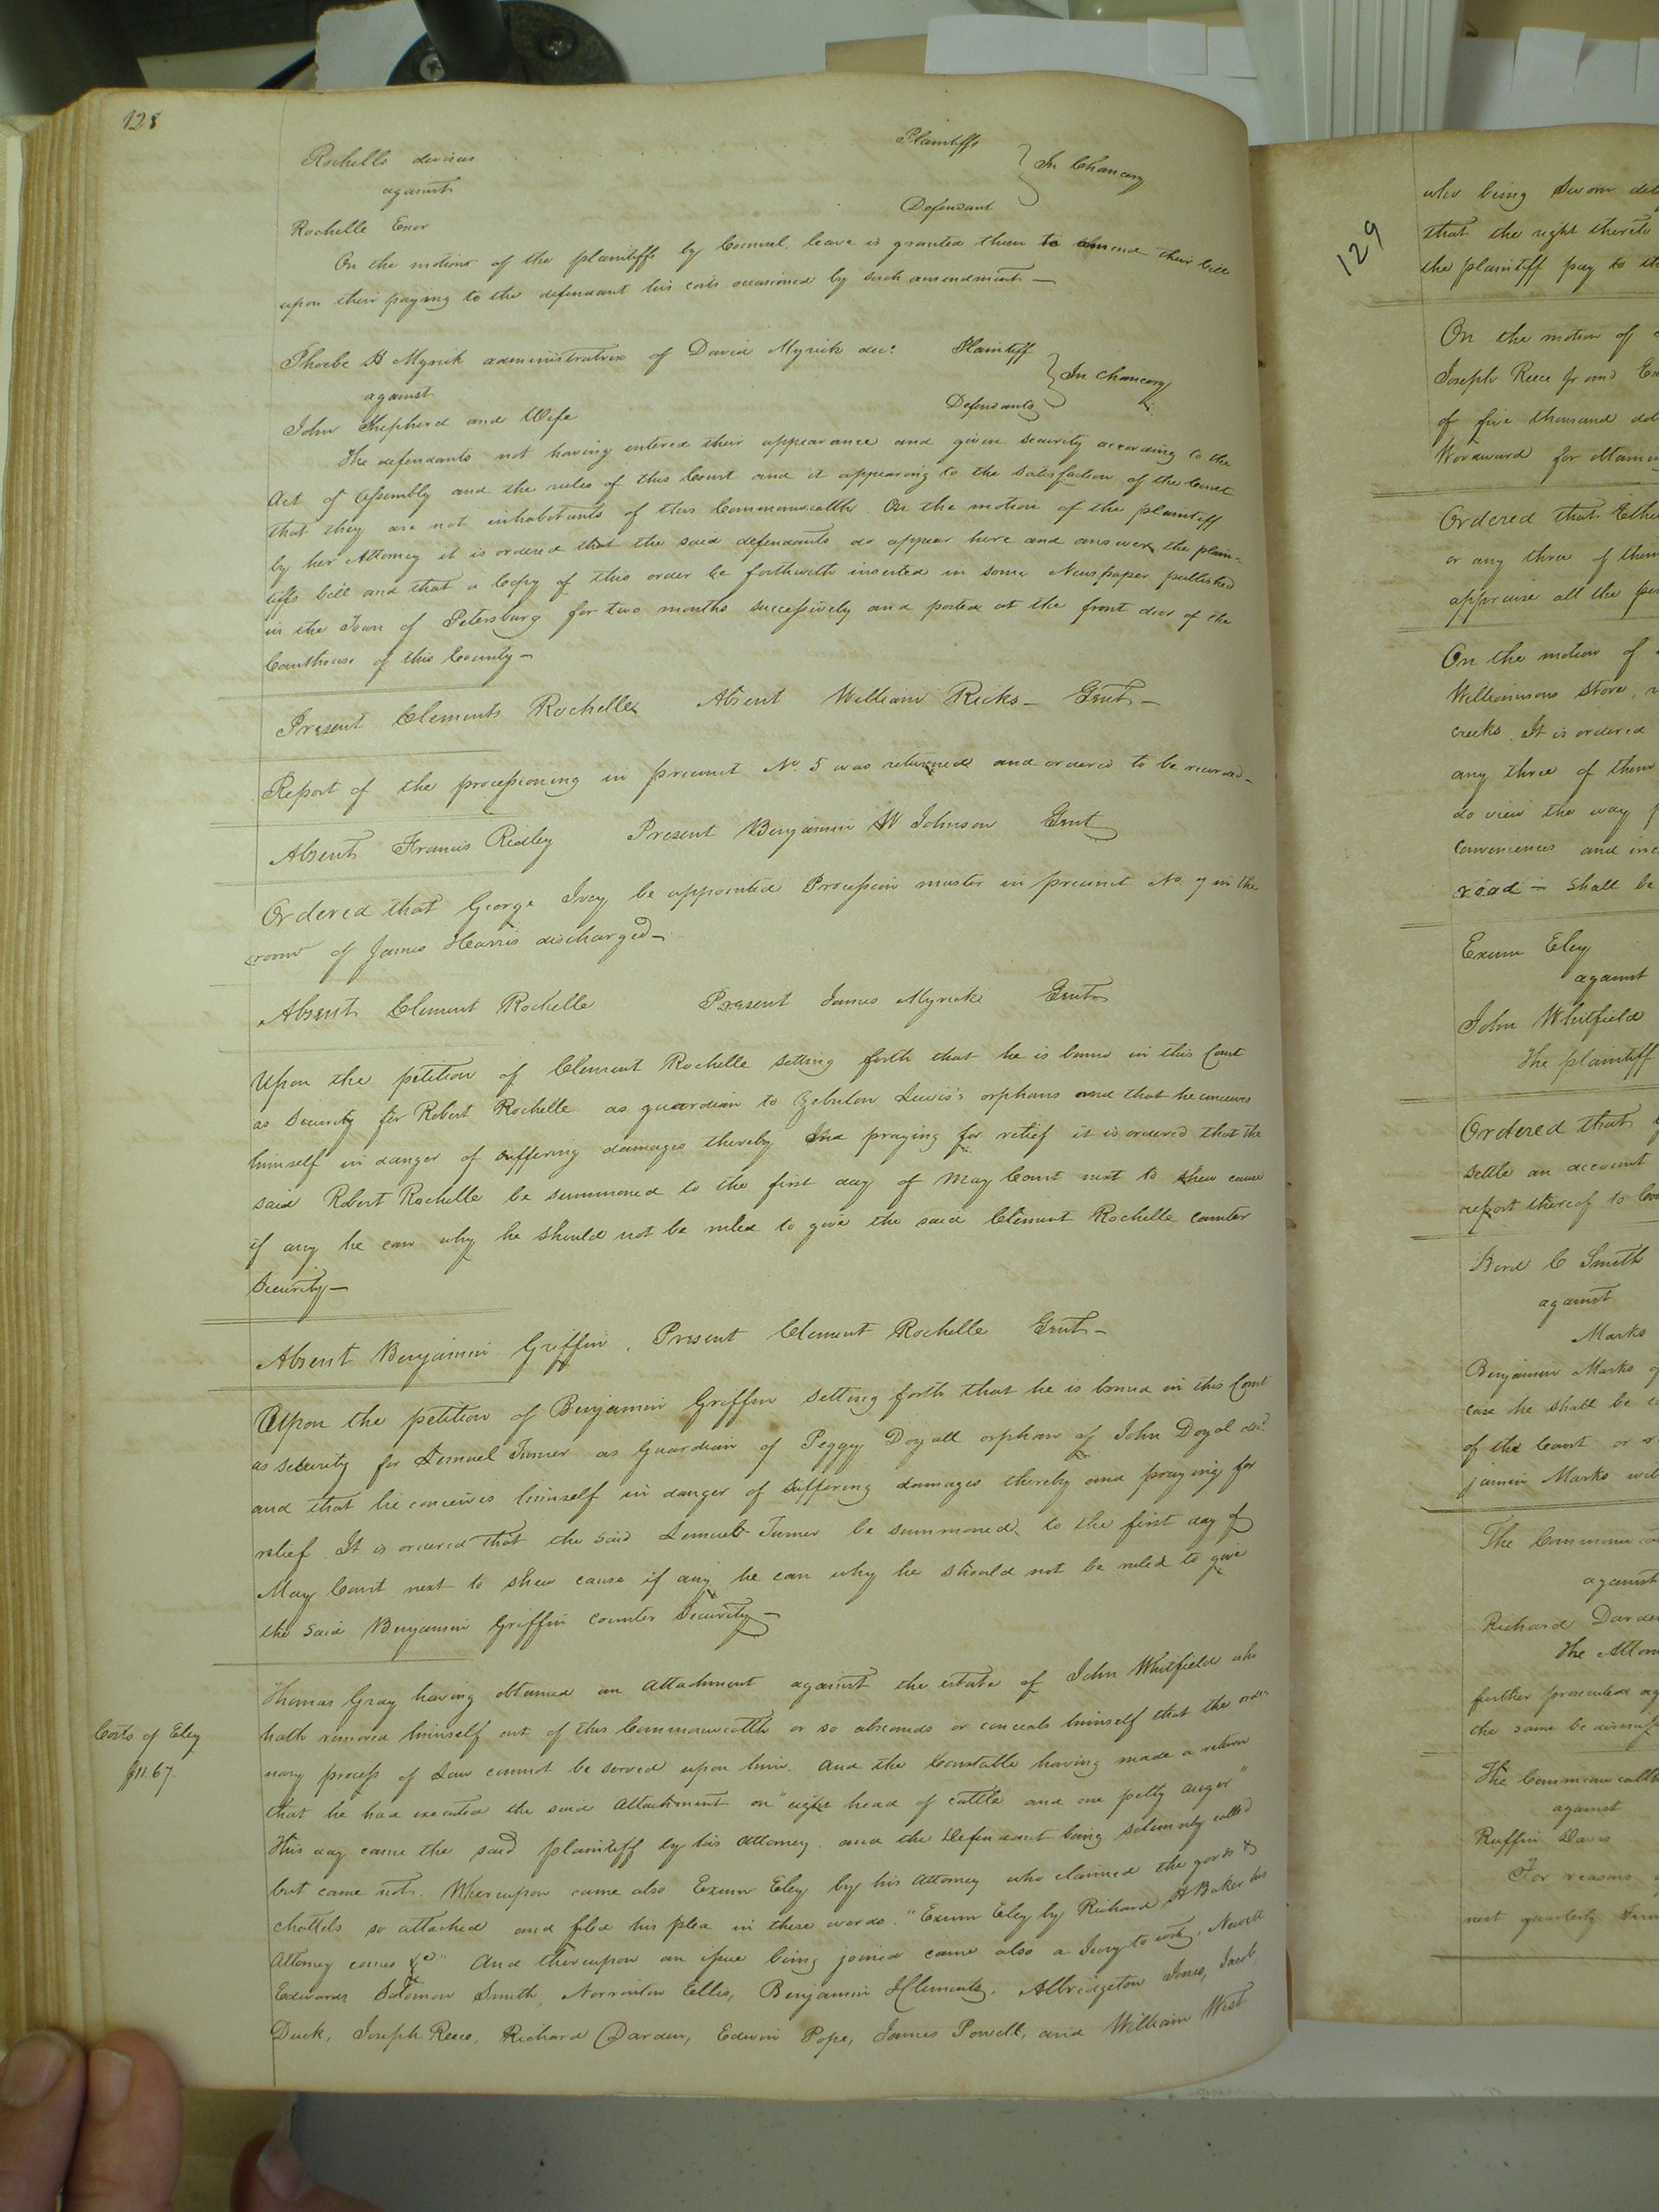 128
Rochells devisees Plaintiffs
against } In Chancery
Rochelle Exor Defendant
On the motions of the plaintiffs by Counsel, leave is granted them to amend their bill
upon their paying to the defendant his costs occasioned by such amendment —
Phoebe H Myrick administratrix of David Myrick dec? Plaintiff
against } In Chancery
John Shepherd and Wife Defendants
The defendants not having entered their appearance and given security according to the
Act of Assembly and the rules of this Court and it appearing to the satisfaction of the Court
that they are not inhabitants of this Commonwealth On the motion of the plaintiff
by her Attorney it is ordered that the said defendants do appear here and answer the plain-
tiffs bill and that a Copy of this order be forthwith inserted in some Newspaper published
in the Town of Petersburg for two months successively and posted at the front door of the
Courthouse of this County —
Present Clements Rochelle Absent William Ricks — Gent —
Report of the processioning in precinct No. 5 was returned and ordered to be recorded —
Absent Francis Ridley Present Benjamin W Johnson Gent
Ordered that George Ivey be appointed Procession master in precinct No. 7 in the
room of James Harris discharged —
Absent Clement Rochelle Present James Myrick Gent
Upon the petition of Clement Rochelle setting forth that he is bound in this Court
as Security for Robert Rochelle as guardian to Zebulon Lewis's orphans and that he conceives
himself in danger of suffering damages thereby And praying for relief it is ordered that the
said Robert Rochelle be summoned to the first day of May Court next to shew cause
if any he can why he should not be ruled to give the said Clement Rochelle counter
Security —
Absent Benjamin Griffin, Present Clement Rochelle Gent —
Upon the petition of Benjamin Griffin setting forth that he is bound in this Court
as security for Lemuel Turner as Guardian of Peggy Doyall orphan of John Doyal decd
and that he conceives himself in danger of suffering damages thereby and praying for
relief. It is ordered that the said Lemuel Turner be summoned to the first day of
May Court next to shew cause if any he can why he should not be ruled to give
the said Benjamin Griffin counter Security —
Thomas Gray having obtained an Attachment against the estate of John Whitfield who
hath removed himself out of this Commonwealth or so absconds or conceals himself that the ordi
Costs of Eley
$11.67.
nary process of Law cannot be served upon him. And the Constable having made a return
that he had executed the said Attachment on "eight head of cattle and one petty auger"
This day came the said plaintiff by his Attorney. and the Defendant being solemnly called
but came not. Whereupon came also Exum Eley by his Attorney who claimed the goods &
chattels so attached and filed his plea in these words. "Exum Eley by Richard H Baker his
Attorney comes &c" And thereupon an issue being joined came also a Jury to wit, Newit
Edwards Solomon Smith, Norrinton Ellis, Benjamin Clements, Albridgeton Jones, Jacob
Duck, Joseph Reece, Richard Darden, Edwin Pope, James Powell, and William West
129
who being sworn
that the right thereto
the plaintiff pay to
On the motion of
Joseph Reece Jr and
of five thousand
Woodward for
Ordered that
or any three of them
appraise all the
On the motion of
Williamsons store,
creeks. It is ordered
any three of them
do view the way
conveniences and
road — shall be
Exum Eley
against
John Whitfield
The plaintiff
Ordered that
settle an account
report thereof to
Bird C Smith
against
Marks
Benjamin Marks
case he shall be
of the Court or
jamin Marks
The Commonwealth
against
Richard Darden
The
further prosecuted
the same be
The Commonwealth
against
Ruffin Davis
For reasons
next quarterly